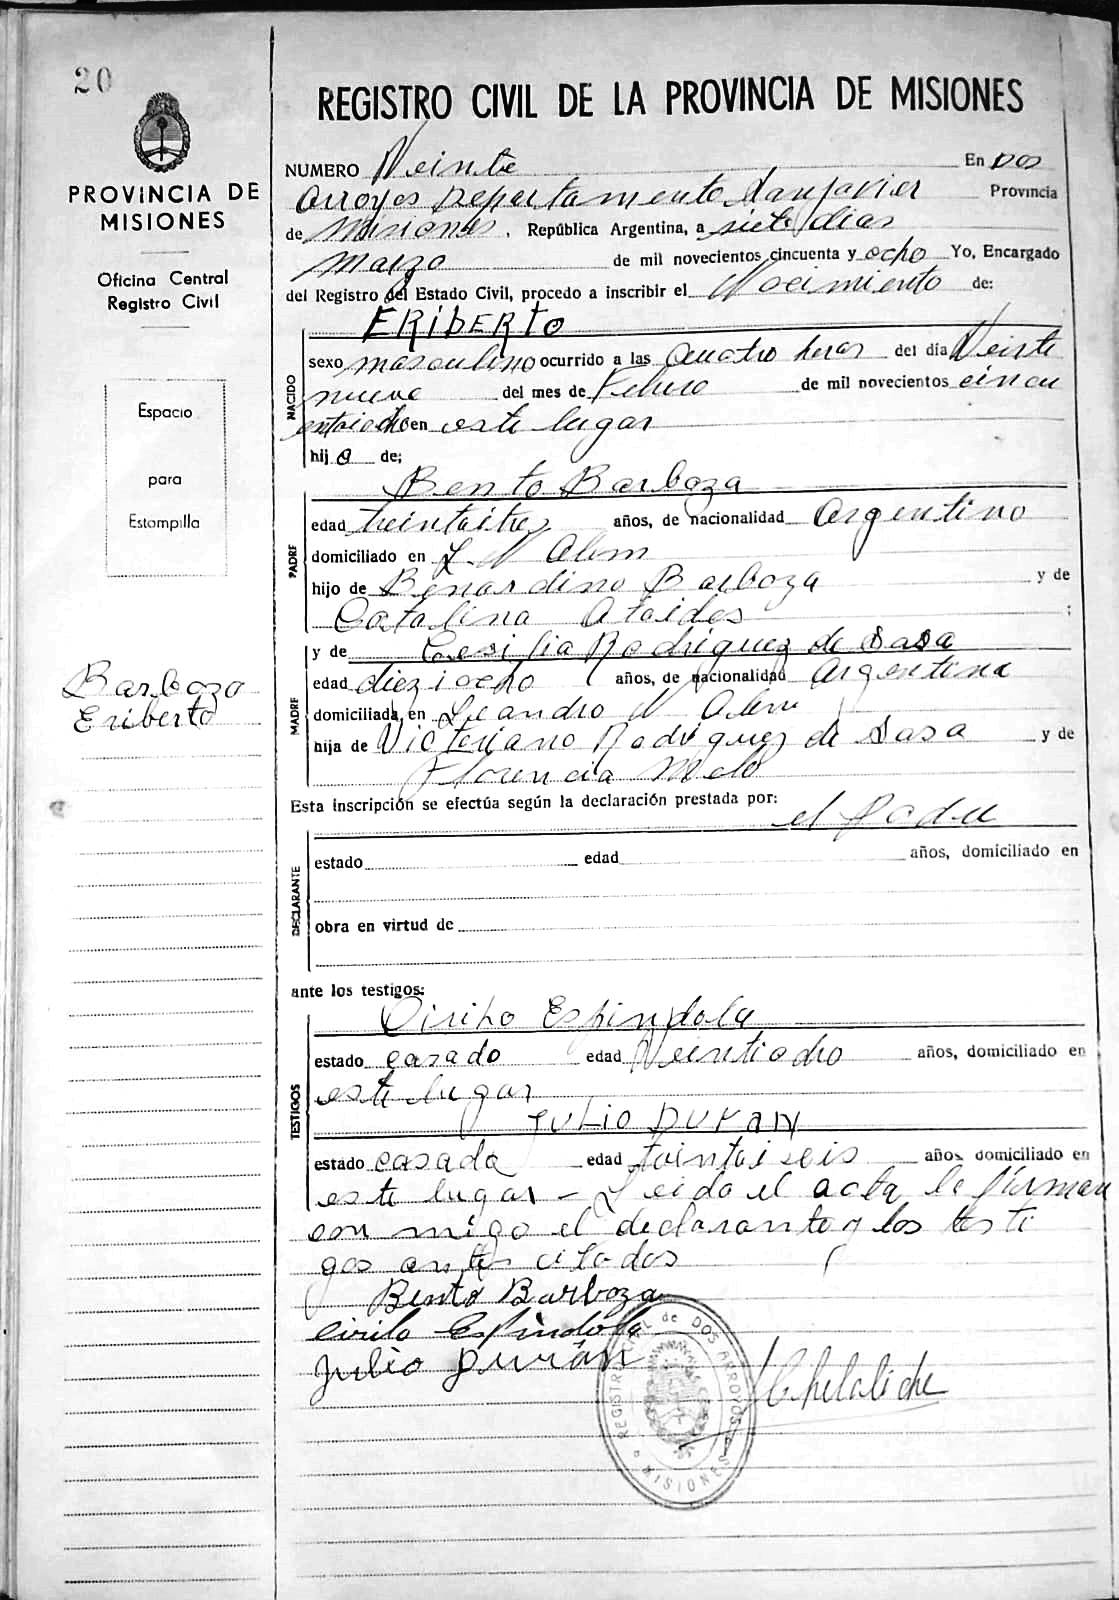 20
PROVINCIA DE
MISIONES
Oficina Central
Registro Civil
Espacio
para
Estampilla
Barboza
Eriberto
REGISTRO CIVIL DE LA PROVINCIA DE MISIONES
NUMERO Veinte En Dos
Arroyos Departamento San Javier Provincia
de Misiones, República Argentina, a siete dias
Marzo de mil novecientos cincuenta y ocho Yo, Encargado
del Registro del Estado Civil, procedo a inscribir el Nacimiento de:
NACIDO
ERIBERTO
sexo masculino ocurrido a las Cuatro horas del día Veinte
nueve del mes de Febrero de mil novecientos cincu
entaiocho en este lugar
hijo de;
PADRE
Bento Barboza
edad treintaitres años, de nacionalidad Argentino
domiciliado en L. N Alem
hijo de Benardino Barboza y de
Catalina Ataides ;
MADRE
y de Cesilia Rodriguez de Sasa
edad dieziocho años, de nacionalidad Argentina
domiciliada en Leandro N Alem
hija de Victoriano Rodriguez de Sasa y de
Florencia Melo
Esta inscripción se efectúa según la declaración prestada por:
el Padre
DECLARANTE
estado edad años, domiciliado en
obra en virtud de
ante los testigos:
TESTIGOS
Cirilo Espindola
estado casado edad Veintiocho años, domiciliado en
este lugar
JULIO DURAN
estado casado edad trintaiseis años, domiciliado en
este lugar - Leida el acta la firman
con migo el declarante y los testi
gos antes citados
Bento Barboza
Cirilo Espindola
Julio Durán
REGISTRO CIVIL de DOS ARROYOS
MISIONES